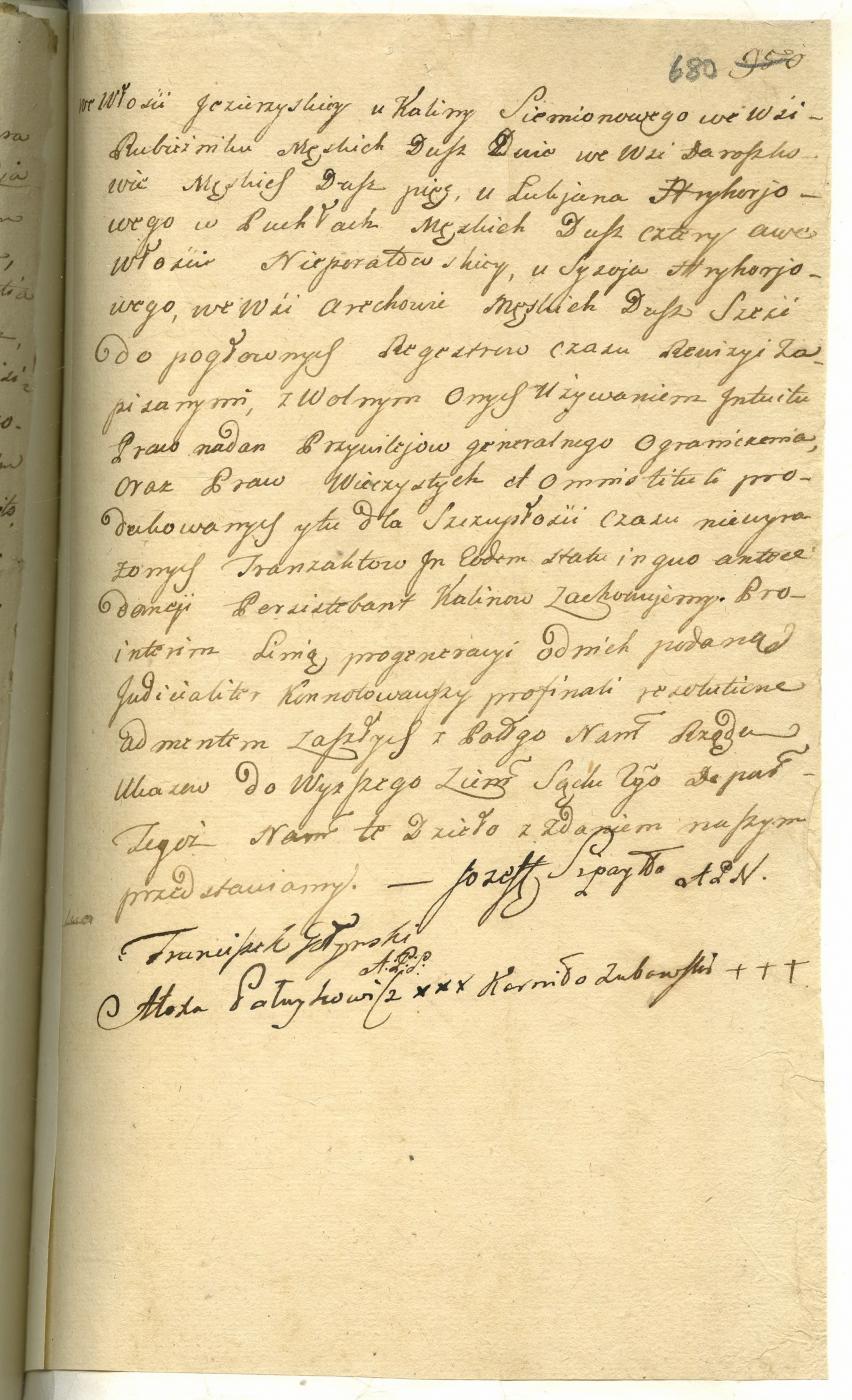 680 950
we Włosii Jezierzyskiey u Kaliny Siemionowego we Wsi-
Rubieżniku Męskich Dusz Dwie we Wsi Daroszko-
wie Męskich Dusz pięć, u Lukjana Hryhorjo-
wego w Puchłach Męskich Dusz cztery a we
Włosiie Nieporatowskiey, u Sysoja Hryhorjo-
wego, we Wsi Arechowie Męskich Dusz Szesć
do pogłownych Regestrow czasu Rewizyi Za-
pisanymi, z Wolnym Onych Używaniem Intuitu
Praw nadan Przywilejow generalnego Ograniczenia,
oraz Praw Wieczystych et Omni tituli pro-
dukowanych y tu dla Szczupłosii czasu niewyra
żonych Tranzaktow In Eodem statu in quo antece
dencyi Persistebant Kalinow Zachowujemy. Pro-
interim Linią progeneracyi Od nich podaną
Judicialiter Konnotowawszy pro finali rezolutione
ad mentem zaszłych z Połgo Namt Rządu
Ukazow do Wyższego Ziemt Sądu Igo Depart-
Tegoż Namt te Dzieło z Zdaniem naszym
przedstawiamy. — Jozeff Szpayłło A P N.
Franciszek Gołynski
A.P.P.
Atoza Pałuykowicz xxx Karniło Zubowski +++